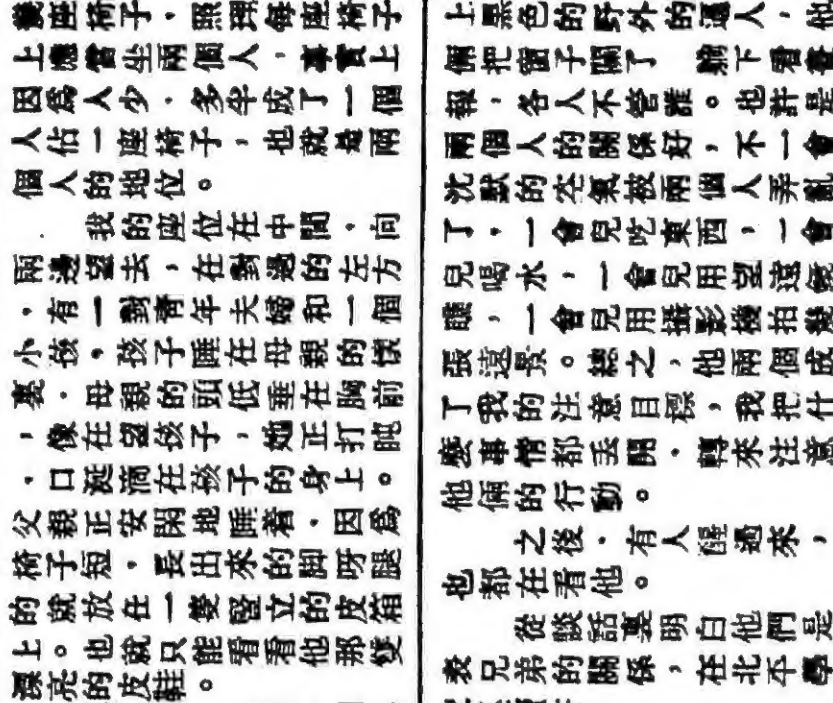 幾座椅子．照理每座椅子
上應當坐兩個人．事實上
因爲人少．多半成了一個
人佔一座椅子，也就是兩
個人的地位。
我的座位在中間．向
兩邊望去，在對邊的左方
，有一對青年夫婦和一個
小孩。孩子睡在母親的懷
裏．母親的頭低垂在胸前
，像在望孩子，她正打盹
．口涎滴在孩子的身上。
父親正安閑地睡着．因爲
椅子短．長出來的脚呀腿
的就放在一隻豎立的皮箱
上。也就只能看看他那雙
漂亮的皮鞋。
上黑色的野外的人，他
倆把窗子關了　躺下看書
報，各人不管誰。也許是
兩個人的關係好，不一會
沈默的空氣被兩個人弄亂
了，一會兒吃東西，一會
兒喝水，一會兒用望遠鏡
瞧，一會兒用攝影機拍幾
張遠景。總之，他兩個成
了我的注意目標，我把什
麼事情都丟開．轉來注意
他倆的行動。
之後．有人醒過來，
也都在看他。
從談話裏明白他們是
表兄弟的關係，在北平學